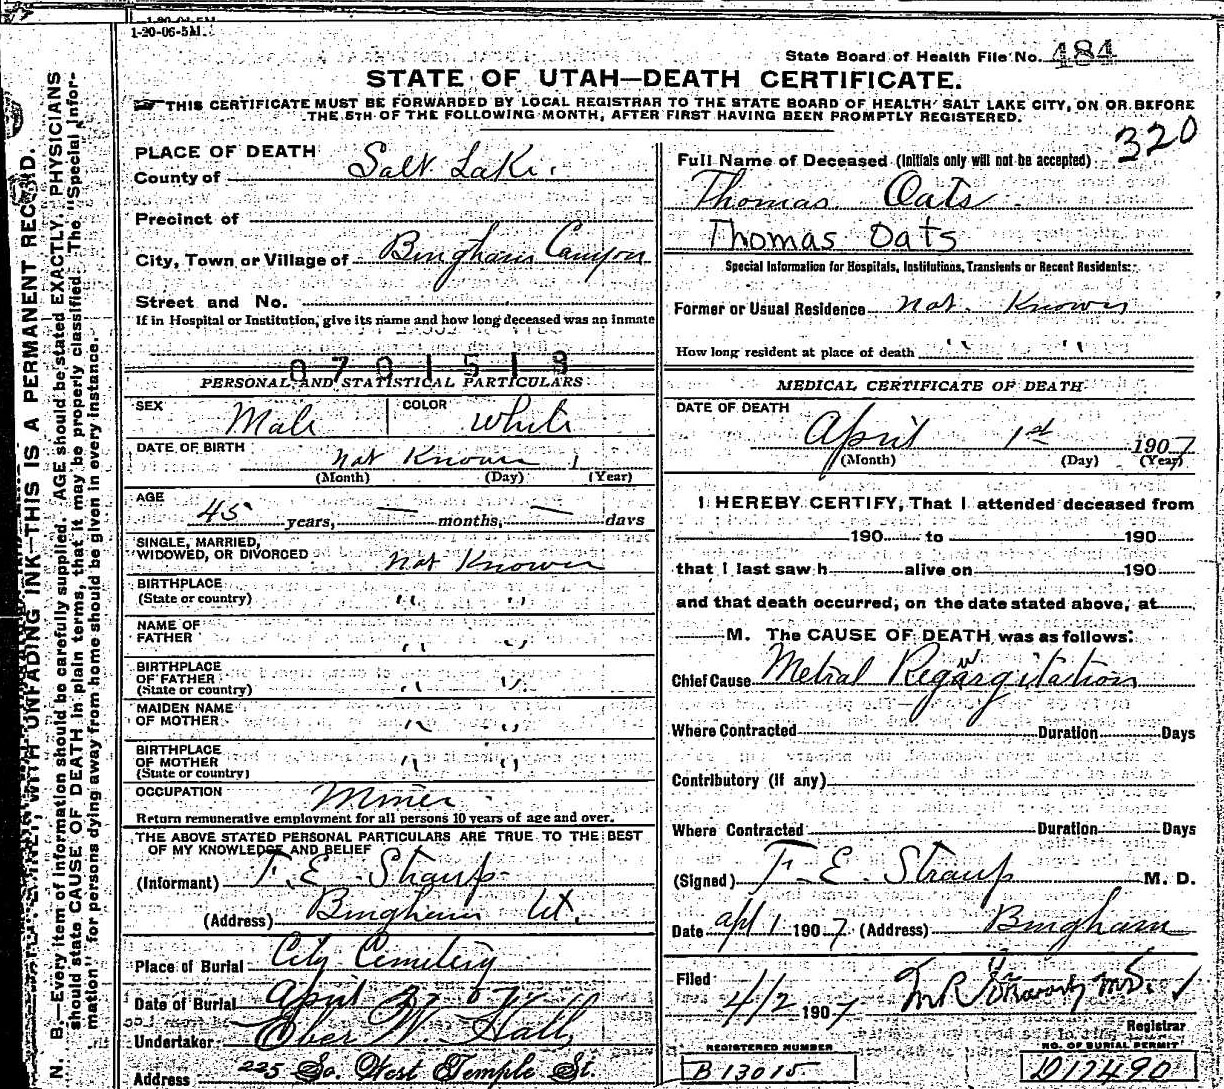 1-20-06-5M.
State Board of Health File No. 484
STATE OF UTAH—DEATH CERTIFICATE.
THIS CERTIFICATE MUST BE FORWARDED BY LOCAL REGISTRAR TO THE STATE BOARD OF HEALTH SALT LAKE CITY, ON OR BEFORE
THE 5TH OF THE FOLLOWING MONTH, AFTER FIRST HAVING BEEN PROMPTLY REGISTERED.
320
N. B.—Every item of information should be carefully supplied. AGE should be stated EXACTLY. PHYSICIANS
should state CAUSE OF DEATH in plain terms, that it may be properly classified. The "Special Infor-
mation" for persons dying away from home should be given in every instance.
WITH UNFADING INK—THIS IS A PERMANENT RECORD.
PLACE OF DEATH
County of Salt Lake.
Precinct of
City, Town or Village of Bingham Canyon
Street and No.
If in Hospital or Institution, give its name and how long deceased was an inmate
0701513
PERSONAL AND STATISTICAL PARTICULARS
SEX Male COLOR White
DATE OF BIRTH Not Known 1
(Month) (Day) (Year)
AGE
45 years, — months, — days
SINGLE, MARRIED,
WIDOWED, OR DIVORCED Not Known
BIRTHPLACE
(State or country) " "
NAME OF
FATHER " "
BIRTHPLACE
OF FATHER
(State or country) " "
MAIDEN NAME
OF MOTHER " "
BIRTHPLACE
OF MOTHER
(State or country) " "
OCCUPATION Miner
Return remunerative employment for all persons 10 years of age and over.
THE ABOVE STATED PERSONAL PARTICULARS ARE TRUE TO THE BEST
OF MY KNOWLEDGE AND BELIEF
(Informant) F. E. Straup
(Address) Bingham Ut.
Place of Burial City Cemetery
Date of Burial April 07
Undertaker Eber W. Hall
Address 225 So. West Temple St.
Full Name of Deceased (Initials only will not be accepted)
Thomas Oats
Thomas Oats
Special Information for Hospitals, Institutions, Transients or Recent Residents:
Former or Usual Residence Not Known
How long resident at place of death " "
MEDICAL CERTIFICATE OF DEATH
DATE OF DEATH
April 1st 1907
(Month) (Day) (Year)
I HEREBY CERTIFY, That I attended deceased from
190 to 190
that I last saw h alive on 190
and that death occurred, on the date stated above, at
M. The CAUSE OF DEATH was as follows:
Chief Cause Metral Regurgitation
Where Contracted Duration Days
Contributory (if any)
Where Contracted Duration Days
(Signed) F. E. Straup M. D.
Date Apl 1 1907. (Address) Bingham
Filed
4/2 1907
Registrar
REGISTERED NUMBER
B 13015
NO. OF BURIAL PERMIT
D12490